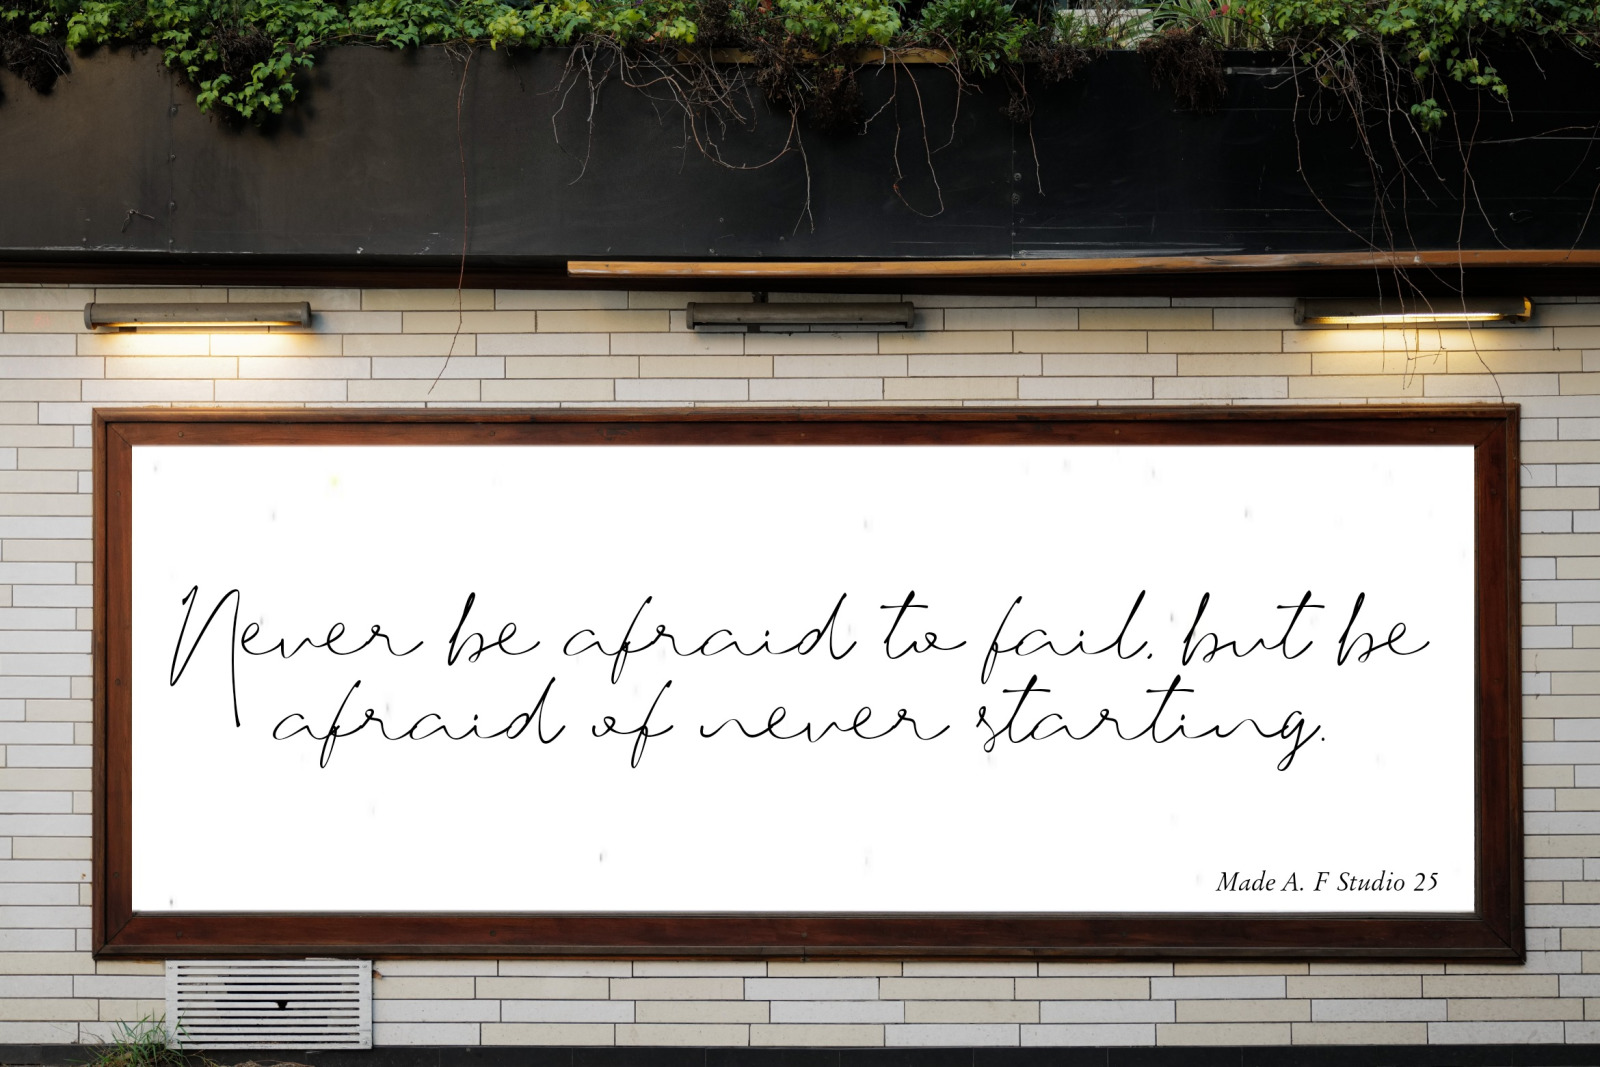 Never be afraid to fail, but be
afraid of never starting.
Made A. F Studio 25